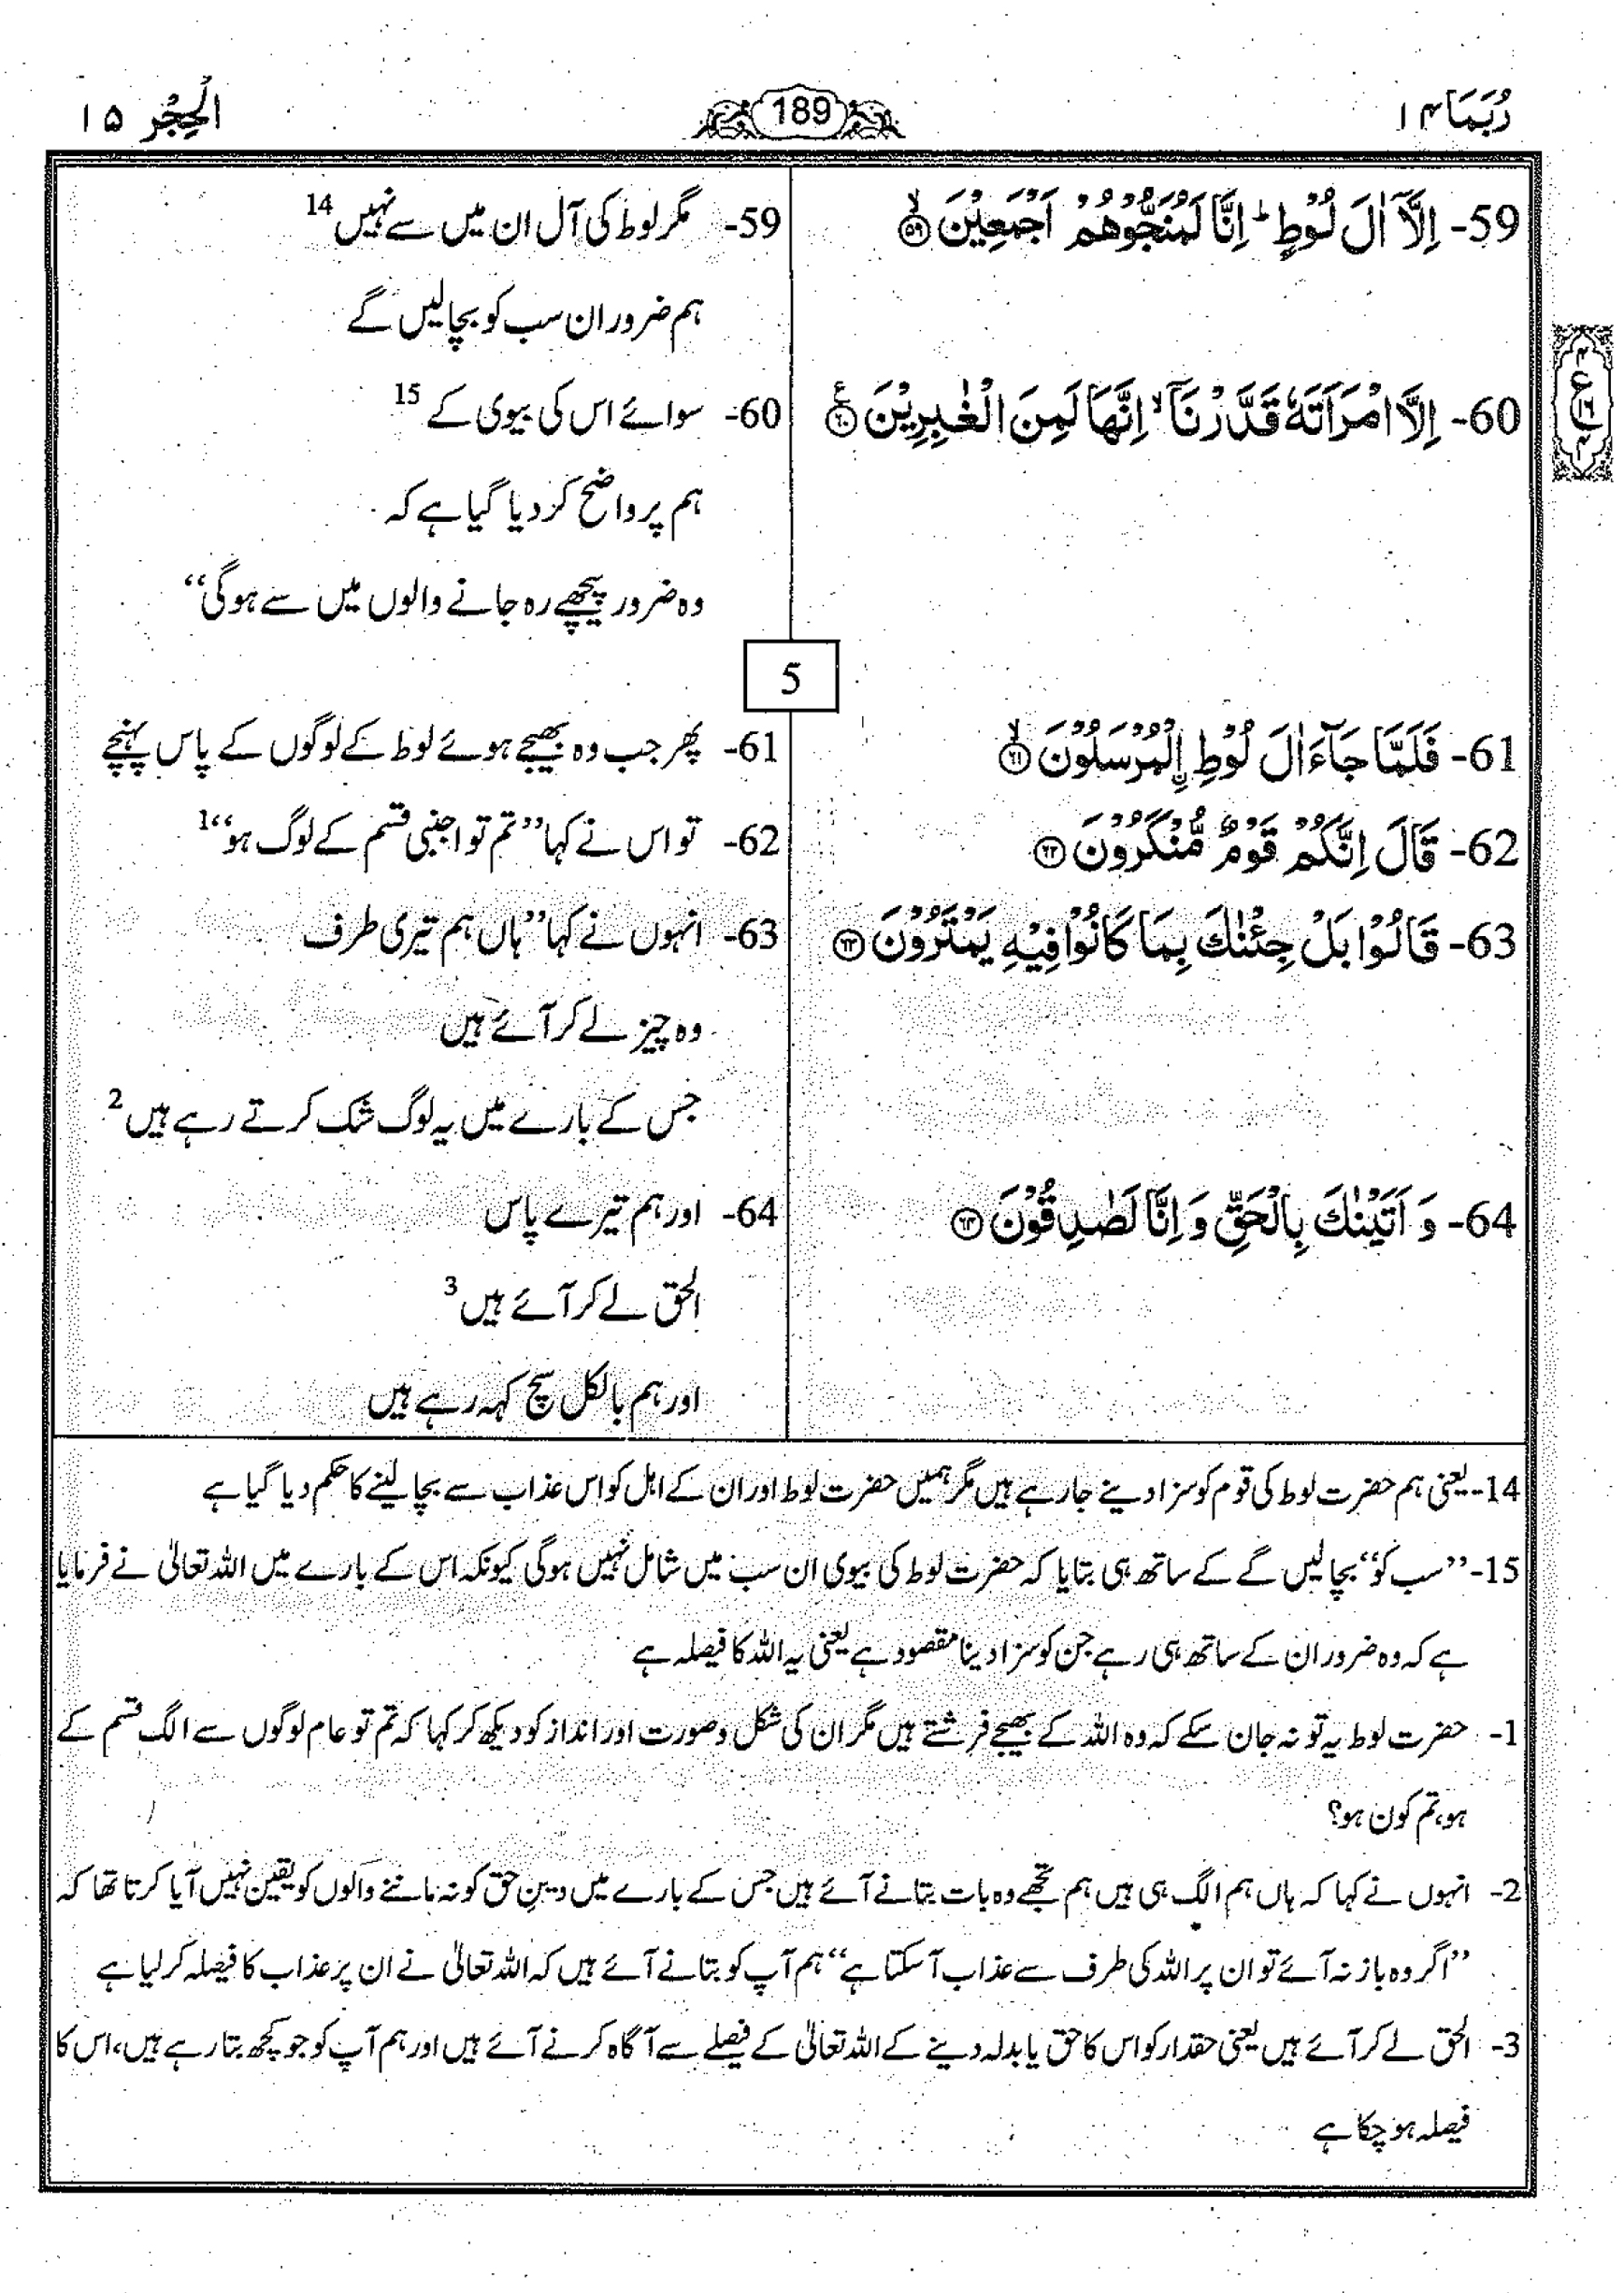 رُبَمَا ۱۴
189
الْحِجْر ۱۵
59- اِلَّاۤ اٰلَ لُوْطٍ ؕ اِنَّا لَمُنَجُّوْهُمْ اَجْمَعِيْنَ ۙ۵۹
59- مگر لوط کی آل ان میں سے نہیں 14
ہم ضرور ان سب کو بچا لیں گے
ع
۴
۱۶
۴
60- اِلَّا امْرَاَتَهٗ قَدَّرْنَاۤ ۙ اِنَّهَا لَمِنَ الْغٰبِرِيْنَ ۠۶۰
60- سوائے اس کی بیوی کے 15
ہم پر واضح کر دیا گیا ہے کہ
وہ ضرور پیچھے رہ جانے والوں میں سے ہوگی‘‘
5
61- فَلَمَّا جَآءَ اٰلَ لُوْطِ ِۨالْمُرْسَلُوْنَ ۙ۶۱
61- پھر جب وہ بھیجے ہوئے لوط کے لوگوں کے پاس پہنچے
62- قَالَ اِنَّكُمْ قَوْمٌ مُّنْكَرُوْنَ ۶۲
62- تو اس نے کہا ’’تم تو اجنبی قسم کے لوگ ہو‘‘1
63- قَالُوْا بَلْ جِئْنٰكَ بِمَا كَانُوْا فِيْهِ يَمْتَرُوْنَ ۶۳
63- انہوں نے کہا ’’ہاں ہم تیری طرف
وہ چیز لے کر آئے ہیں
جس کے بارے میں یہ لوگ شک کرتے رہے ہیں 2
64- وَ اَتَيْنٰكَ بِالْحَقِّ وَ اِنَّا لَصٰدِقُوْنَ ۶۴
64- اور ہم تیرے پاس
الحق لے کر آئے ہیں 3
اور ہم بالکل سچ کہہ رہے ہیں
14- یعنی ہم حضرت لوط کی قوم کو سزا دینے جا رہے ہیں مگر ہمیں حضرت لوط اور ان کے اہل کو اس عذاب سے بچا لینے کا حکم دیا گیا ہے
15- ’’سب کو‘‘ بچا لیں گے کے ساتھ ہی بتایا کہ حضرت لوط کی بیوی ان سب میں شامل نہیں ہوگی کیونکہ اس کے بارے میں اللہ تعالیٰ نے فرمایا
ہے کہ وہ ضرور ان کے ساتھ ہی رہے جن کو سزا دینا مقصود ہے یعنی یہ اللہ کا فیصلہ ہے
1- حضرت لوط یہ تو نہ جان سکے کہ وہ اللہ کے بھیجے فرشتے ہیں مگر ان کی شکل و صورت اور انداز کو دیکھ کر کہا کہ تم تو عام لوگوں سے الگ قسم کے
ہو، تم کون ہو؟
2- انہوں نے کہا کہ ہاں ہم الگ ہی ہیں ہم تجھے وہ بات بتانے آئے ہیں جس کے بارے میں دینِ حق کو نہ ماننے والوں کو یقین نہیں آیا کرتا تھا کہ
’’اگر وہ باز نہ آئے تو ان پر اللہ کی طرف سے عذاب آ سکتا ہے‘‘ ہم آپ کو بتانے آئے ہیں کہ اللہ تعالیٰ نے ان پر عذاب کا فیصلہ کر لیا ہے
3- الحق لے کر آئے ہیں یعنی حقدار کو اس کا حق یا بدلہ دینے کے اللہ تعالیٰ کے فیصلے سے آگاہ کرنے آئے ہیں اور ہم آپ کو جو کچھ بتا رہے ہیں، اس کا
فیصلہ ہو چکا ہے